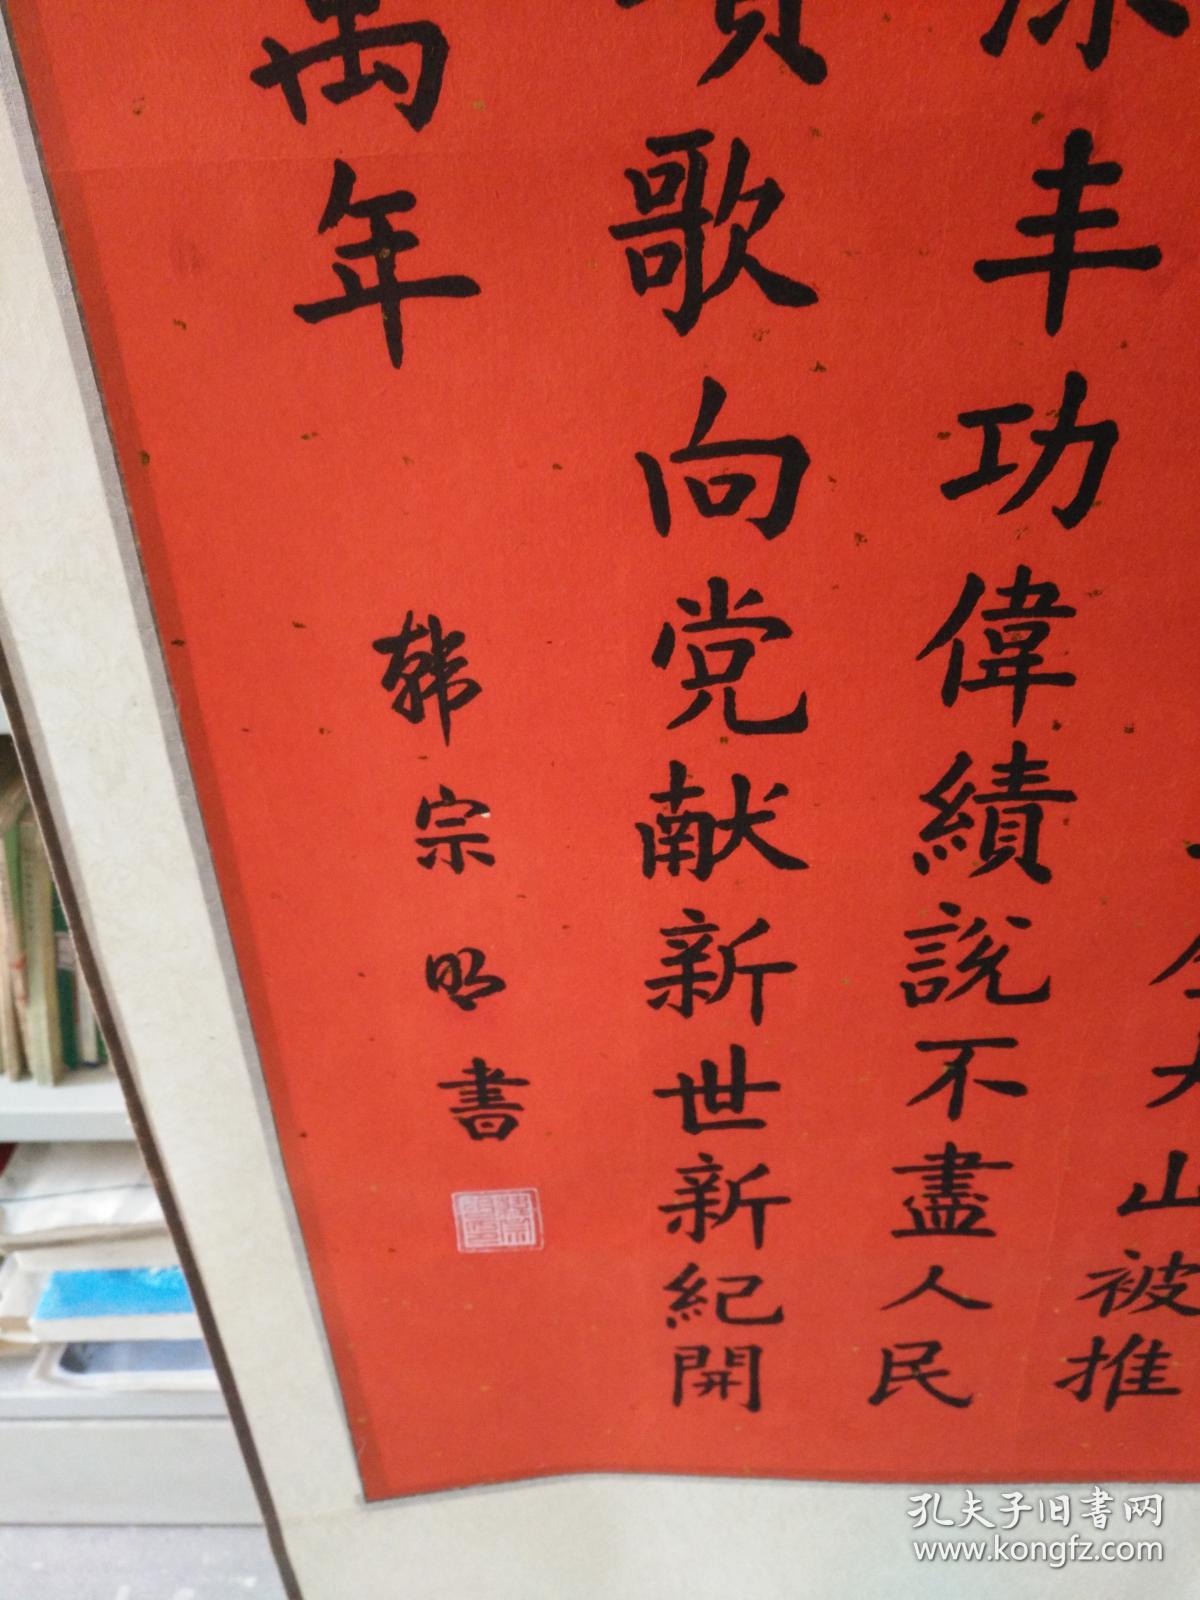 山被推
丰功偉績說不盡人民
歌向党献新世新紀開
萬年
韩宗明書
孔夫子旧書网
www.kongfz.com